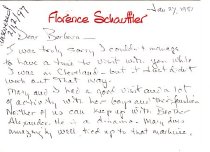 Jan 27, 1981
Florence Schauffler
Dear Barbara -
I was truly sorry I couldn't manage
to have a time to visit with you while
I was in Cleveland - but it just didn't
work out that way.
Mary and I had a good visit and a lot
of activity with her boys and their families
Neither of us can keep up with Brother
Alexander. He is a Mary does
amazingly well tied up to that machine.